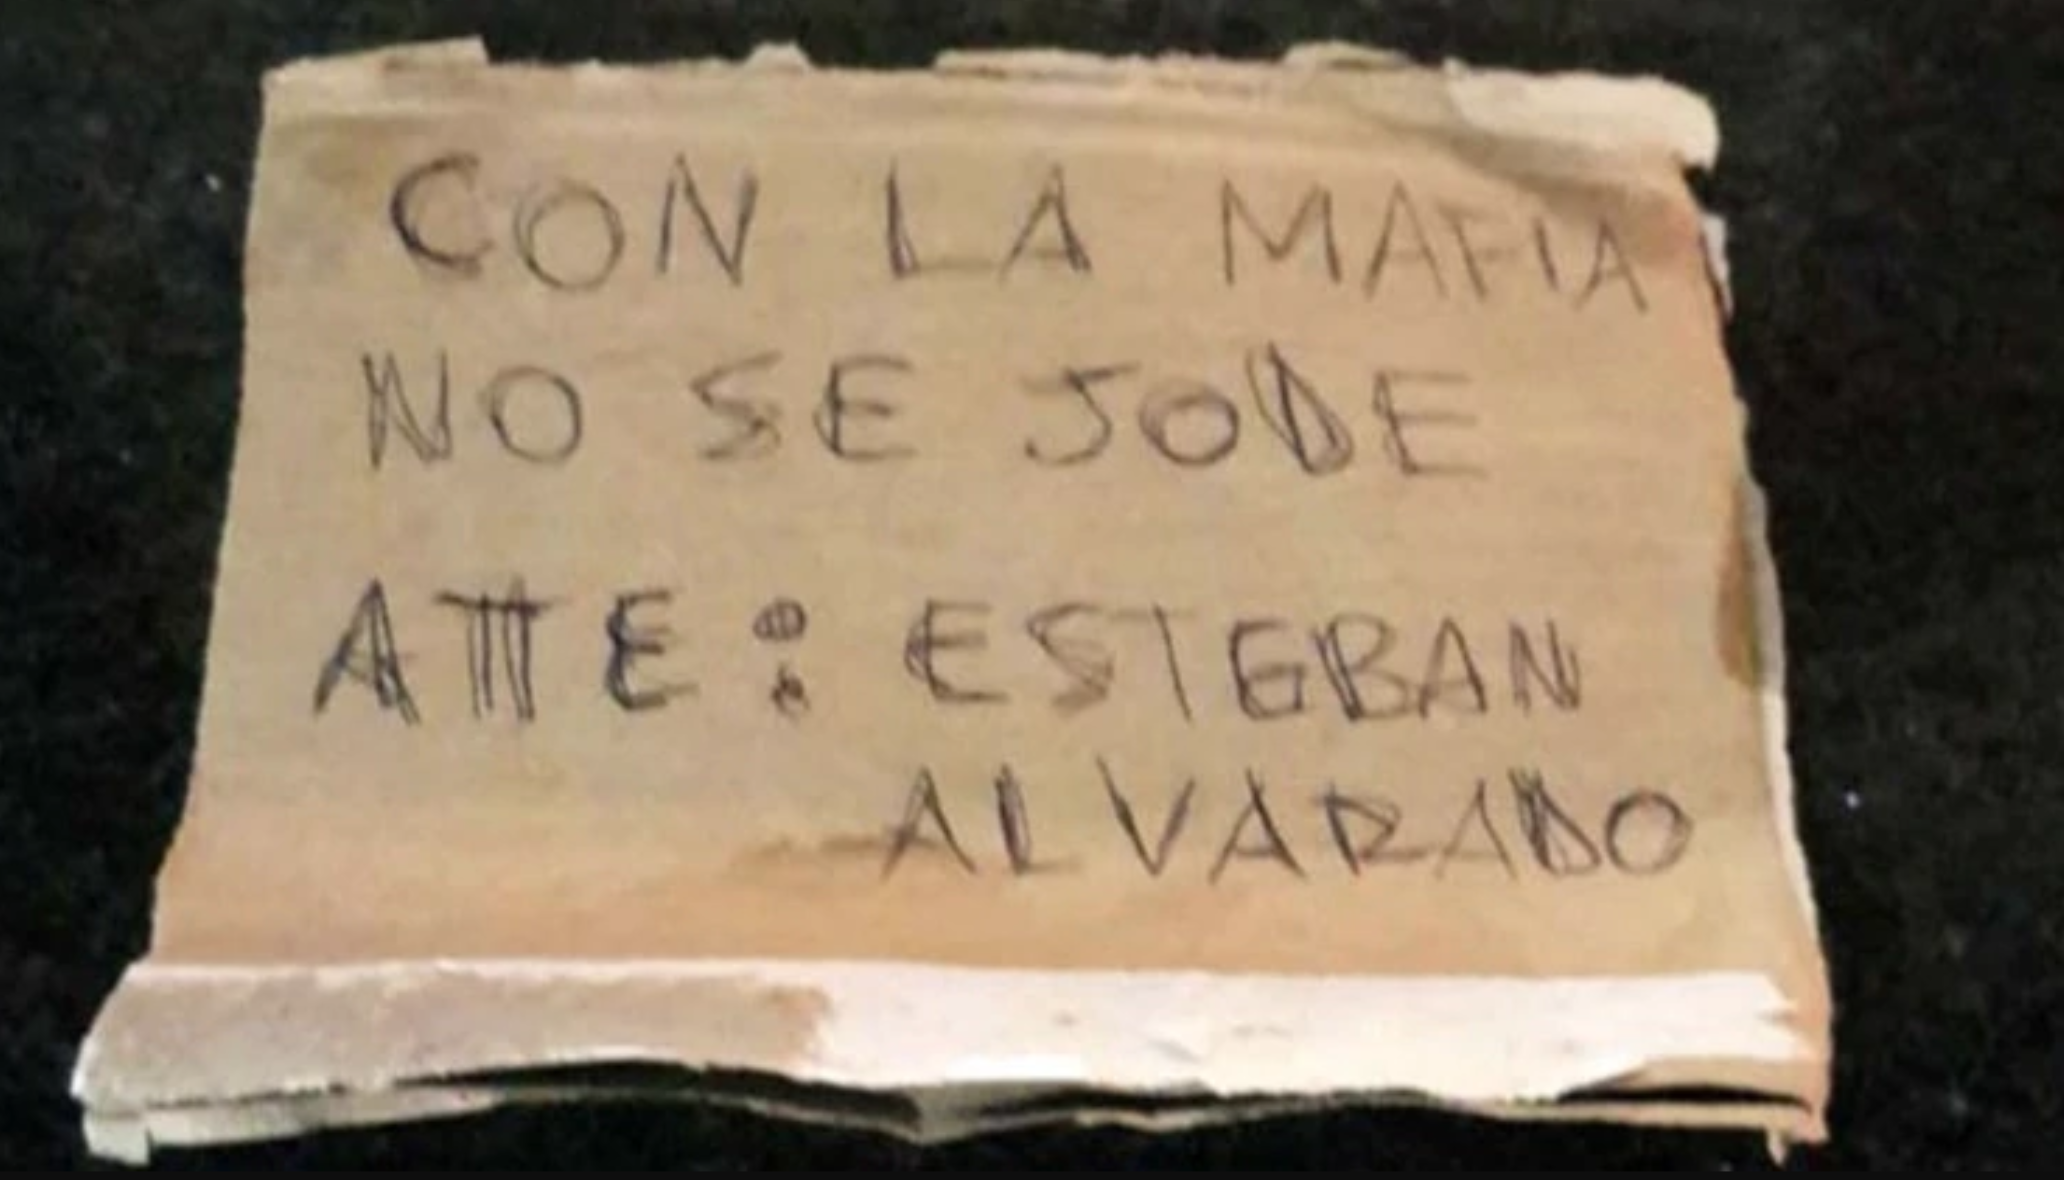 CON LA MAFIA
NO SE JODE
ATTE: ESTEBAN
ALVARADO